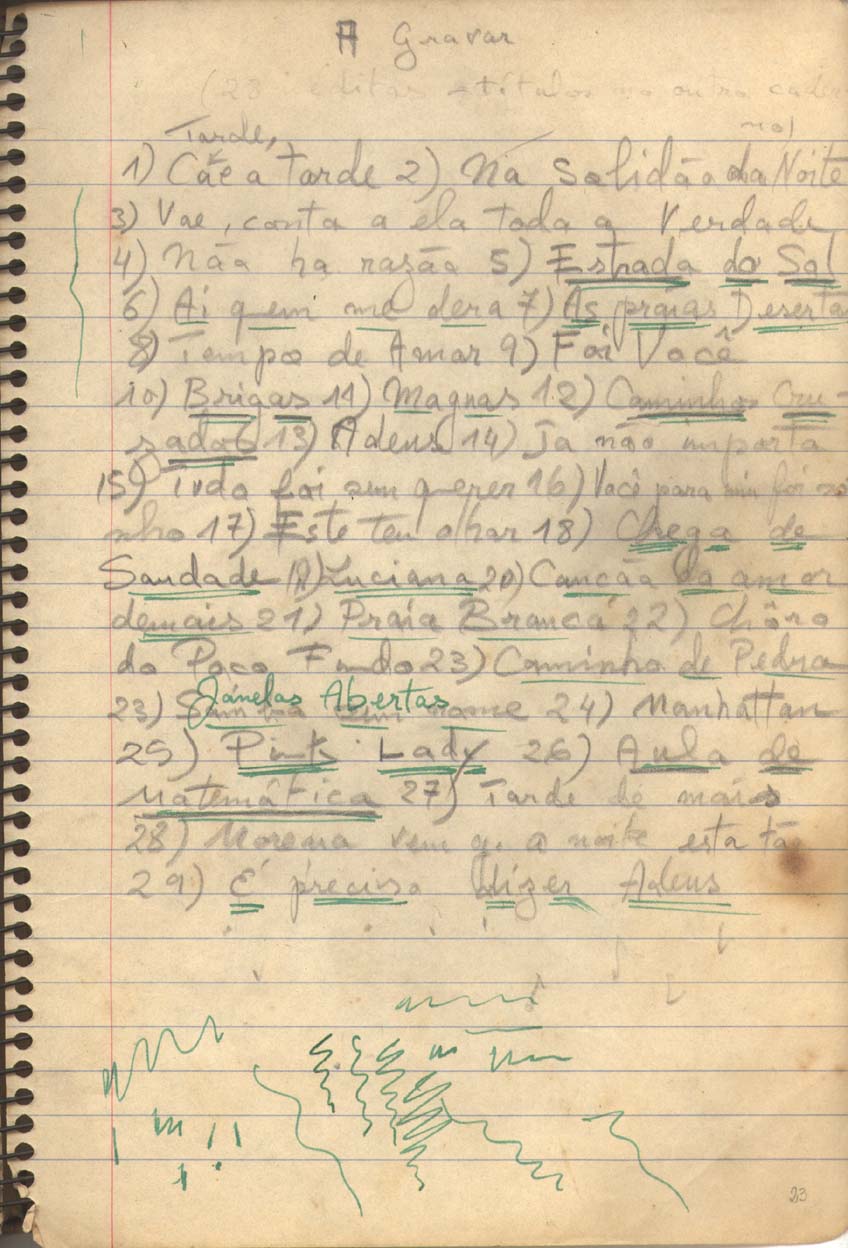 A Gravar
(23 editas títulos no outro cader
no)
Tarde,
1) Cáe a Tarde 2) Na Solidão da Noite
3) Vae, conta a ela toda a Verdade
4) Não ha razão 5) Estrada do Sol
6) Ai quem me dera 7) As praias Deserta
8) Tempo de Amar 9) Foi Você
10) Brigas 11) Magnas 12) Caminhos Cru-
sados 13) Adeus 14) Ja não importa
15) Tudo foi sem querer 16) Você para mim foi so
nho 17) Este teu olhar 18) Chega de
Saudade 19) Luciana 20) Canção do amor
demais 21) Praia Branca 22) Chôro
do Poço Fundo 23) Caminho de Pedra
Janelas Abertas
23) nome 24) Manhattan
25) Pink Lady 26) Aula de
Matemática 27) Tarde de mais
28) Morena vem q. a noite esta tão
29) É preciso dizer Adeus
23